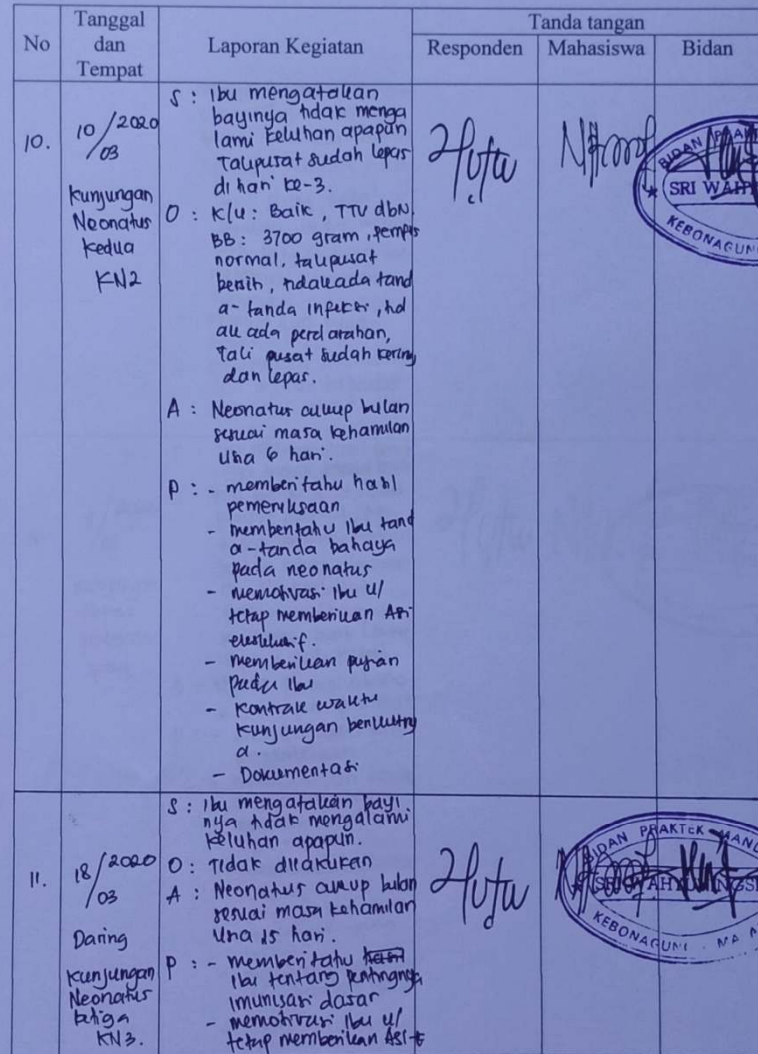 No
Tanggal
dan
Tempat
Laporan Kegiatan
Tanda tangan
Responden
Mahasiswa
Bidan
10.
10/03 2020
Kunjungan
Neonatus
Kedua
KN2
S : Ibu mengatakan
bayinya tidak menga
lami keluhan apapun
Talipusat sudah lepas
di hari ke-3.
O : K/u : Baik, TTV dbN.
BB : 3700 gram,
normal, talipusat
bersih, tidak ada tand
a-tanda infeksi, tid
ak ada perdarahan,
Tali pusat sudah kering
dan lepas.
A : Neonatus cukup bulan
sesuai masa kehamilan
usia 6 hari.
P : - memberitahu hasil
pemeriksaan
- memberitahu Ibu tand
a-tanda bahaya
pada neonatus
- memotivasi Ibu u/
tetap memberikan ASI
eksklusif.
- memberikan pujian
pada Ibu
- Kontrak waktu
kunjungan berikutny
a.
- Dokumentasi
BIDAN PRAKT
SRI WAH
KEBONAGUN
11.
18/03 2020
Daring
Kunjungan
Neonatus
ketiga
KN3.
S : Ibu mengatakan bayi
nya tidak mengalami
keluhan apapun.
O : Tidak dilakukan
A : Neonatus cukup bulan
sesuai masa kehamilan
Usia 15 hari.
P : - memberitahu hasil
Ibu tentang pentingnya
imunisasi dasar
- memotivasi Ibu u/
tetap memberikan ASI-E
BIDAN PRAKTEK MAND
SRI WAHYUNINGSI
KEBONAGUNG . MA